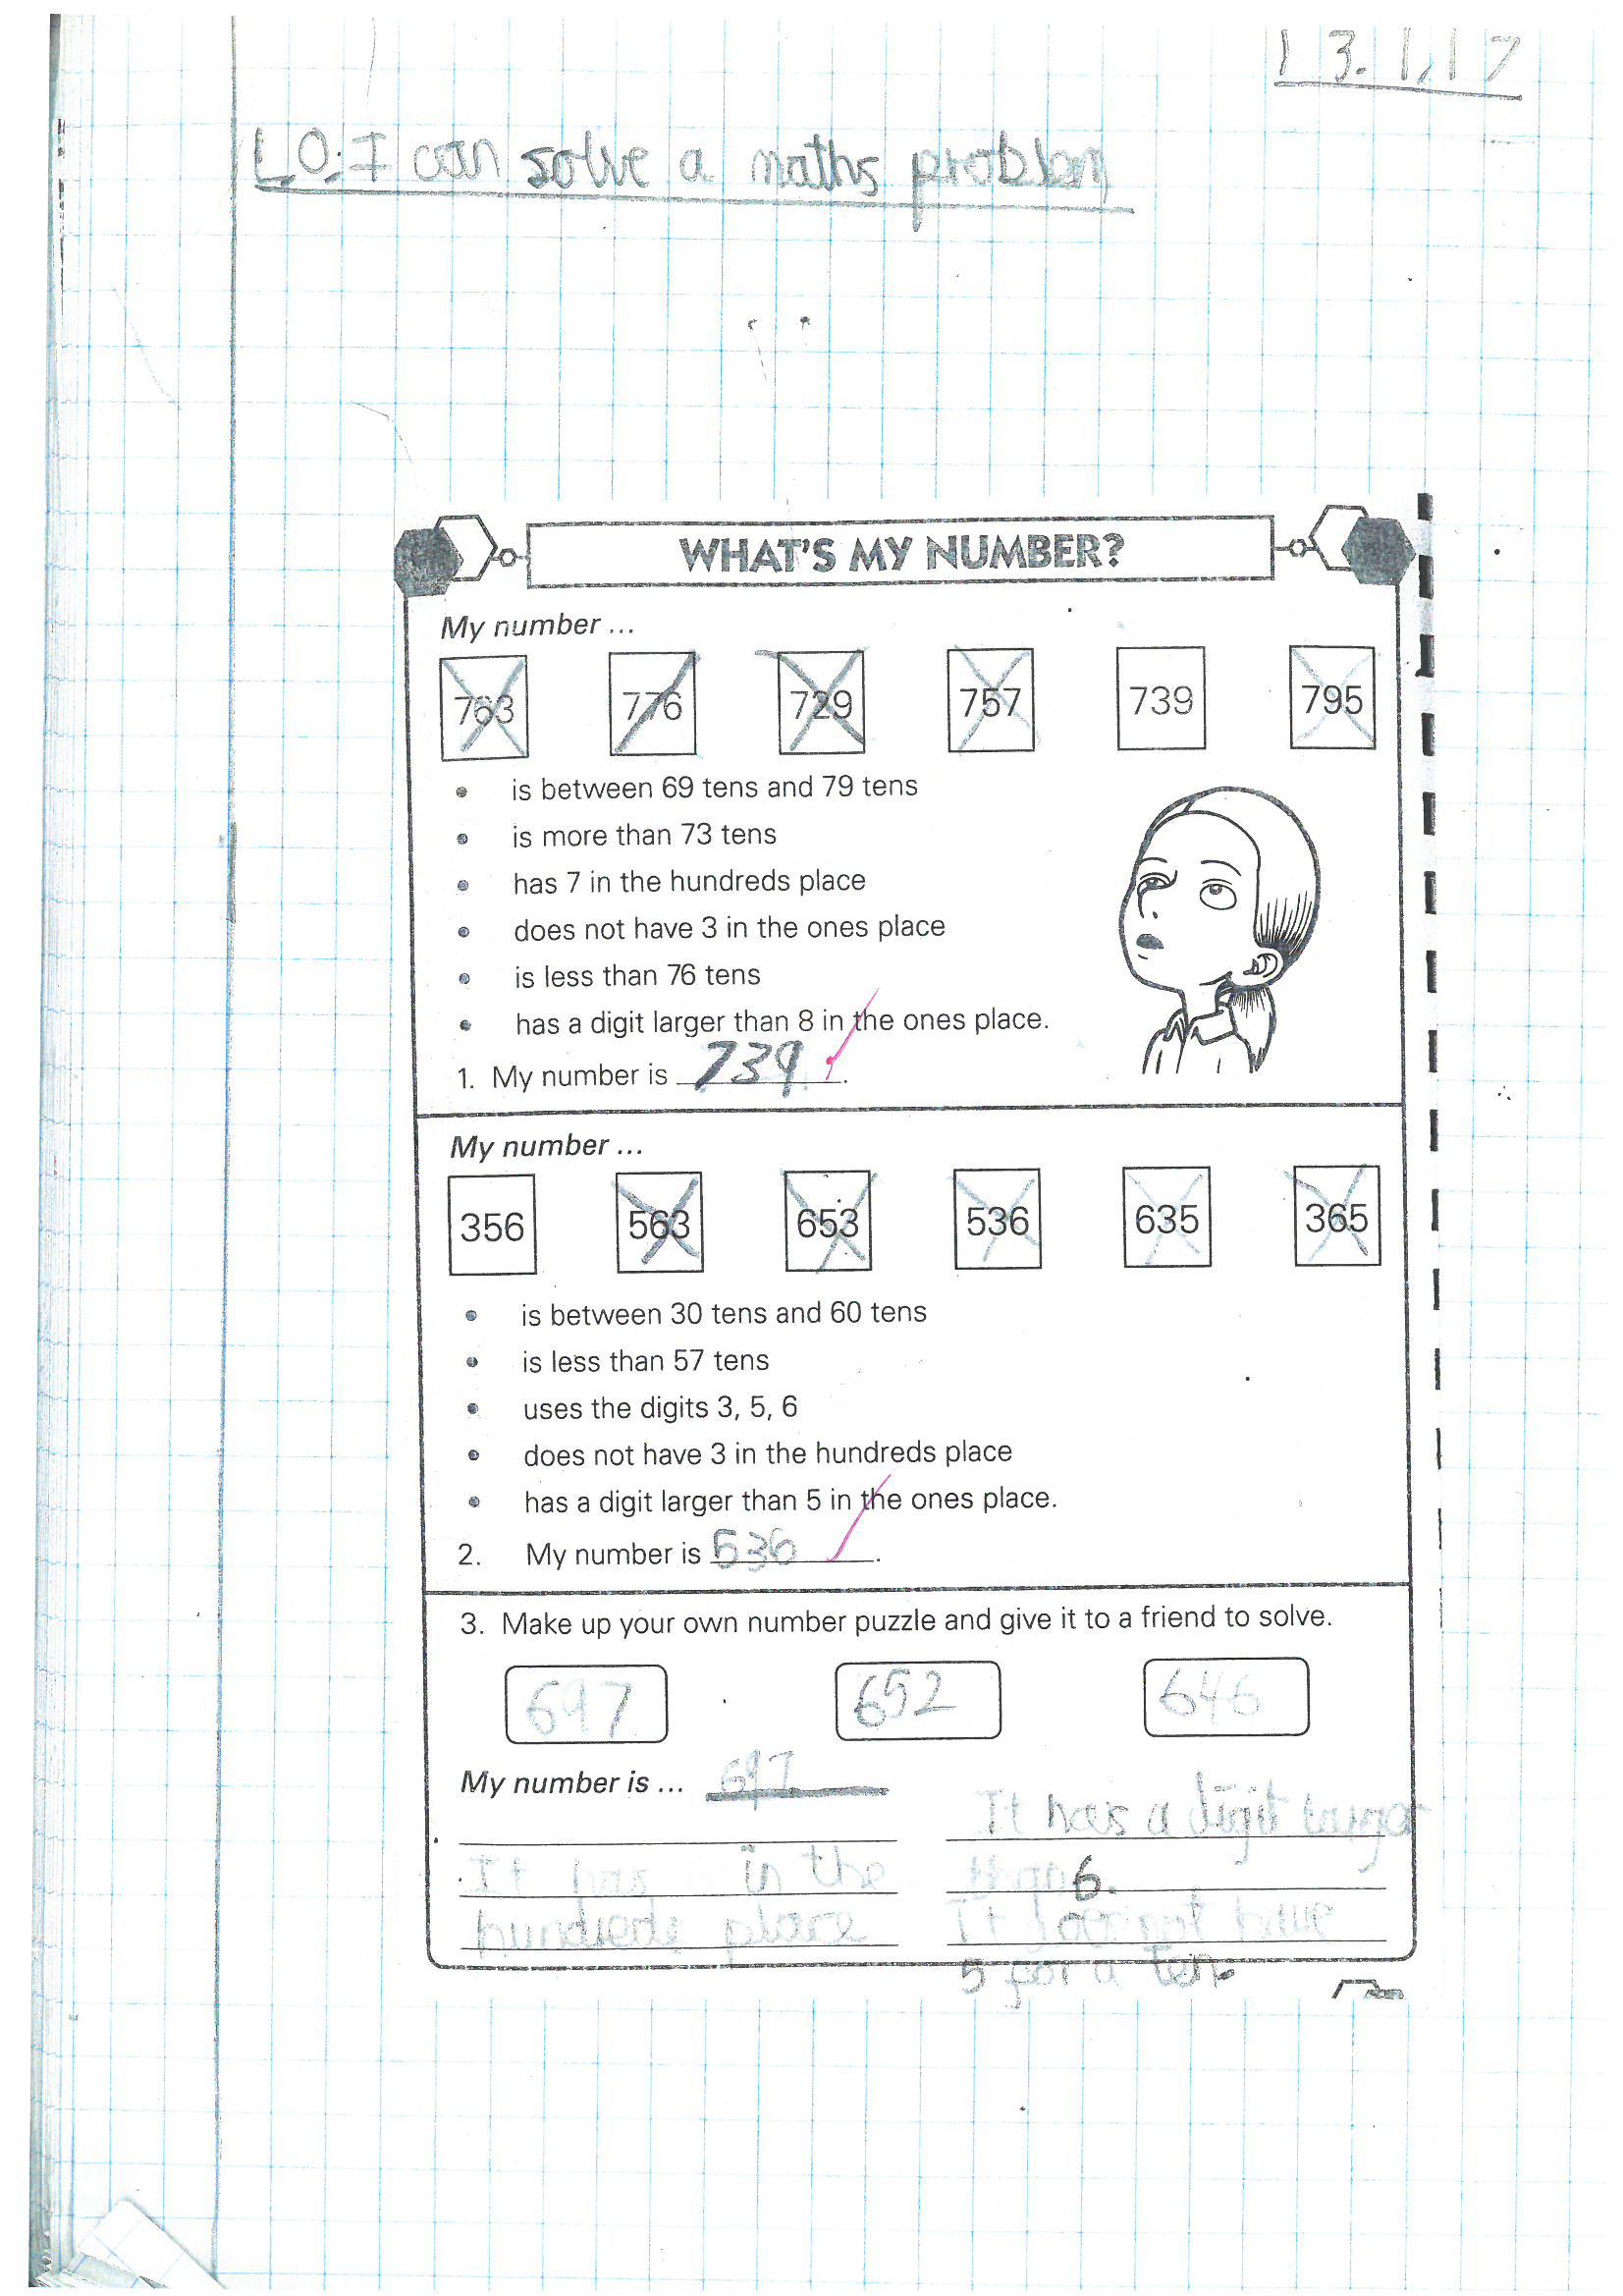 13.1.17
L.O: I can solve a maths problem
WHAT'S MY NUMBER?
My number ...
763 776 729 757 739 795
• is between 69 tens and 79 tens
• is more than 73 tens
• has 7 in the hundreds place
• does not have 3 in the ones place
• is less than 76 tens
• has a digit larger than 8 in the ones place.
1. My number is 739.
My number ...
356 563 653 536 635 365
• is between 30 tens and 60 tens
• is less than 57 tens
• uses the digits 3, 5, 6
• does not have 3 in the hundreds place
• has a digit larger than 5 in the ones place.
2. My number is 536.
3. Make up your own number puzzle and give it to a friend to solve.
697 652 646
My number is ... 697
It has in the
hundreds place
It has a digit larger
than 6.
It does not have
5 for a ten.